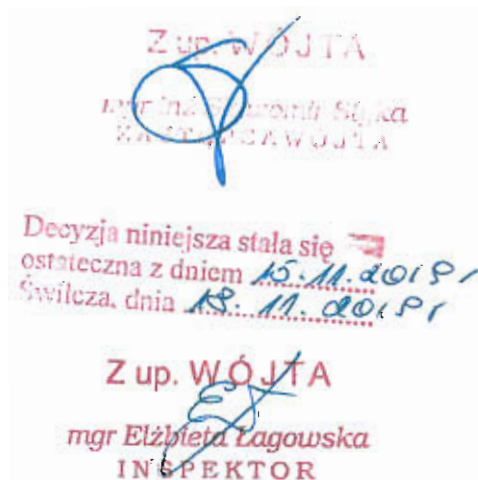 Z up. WÓJTA
mgr inż. Sławomir Styka
ZASTĘPCA WÓJTA
Decyzja niniejsza stała się
ostateczna z dniem 15.11.2019 r
Świlcza, dnia 18.11.2019 r
Z up. WÓJTA
mgr Elżbieta Łagowska
INSPEKTOR